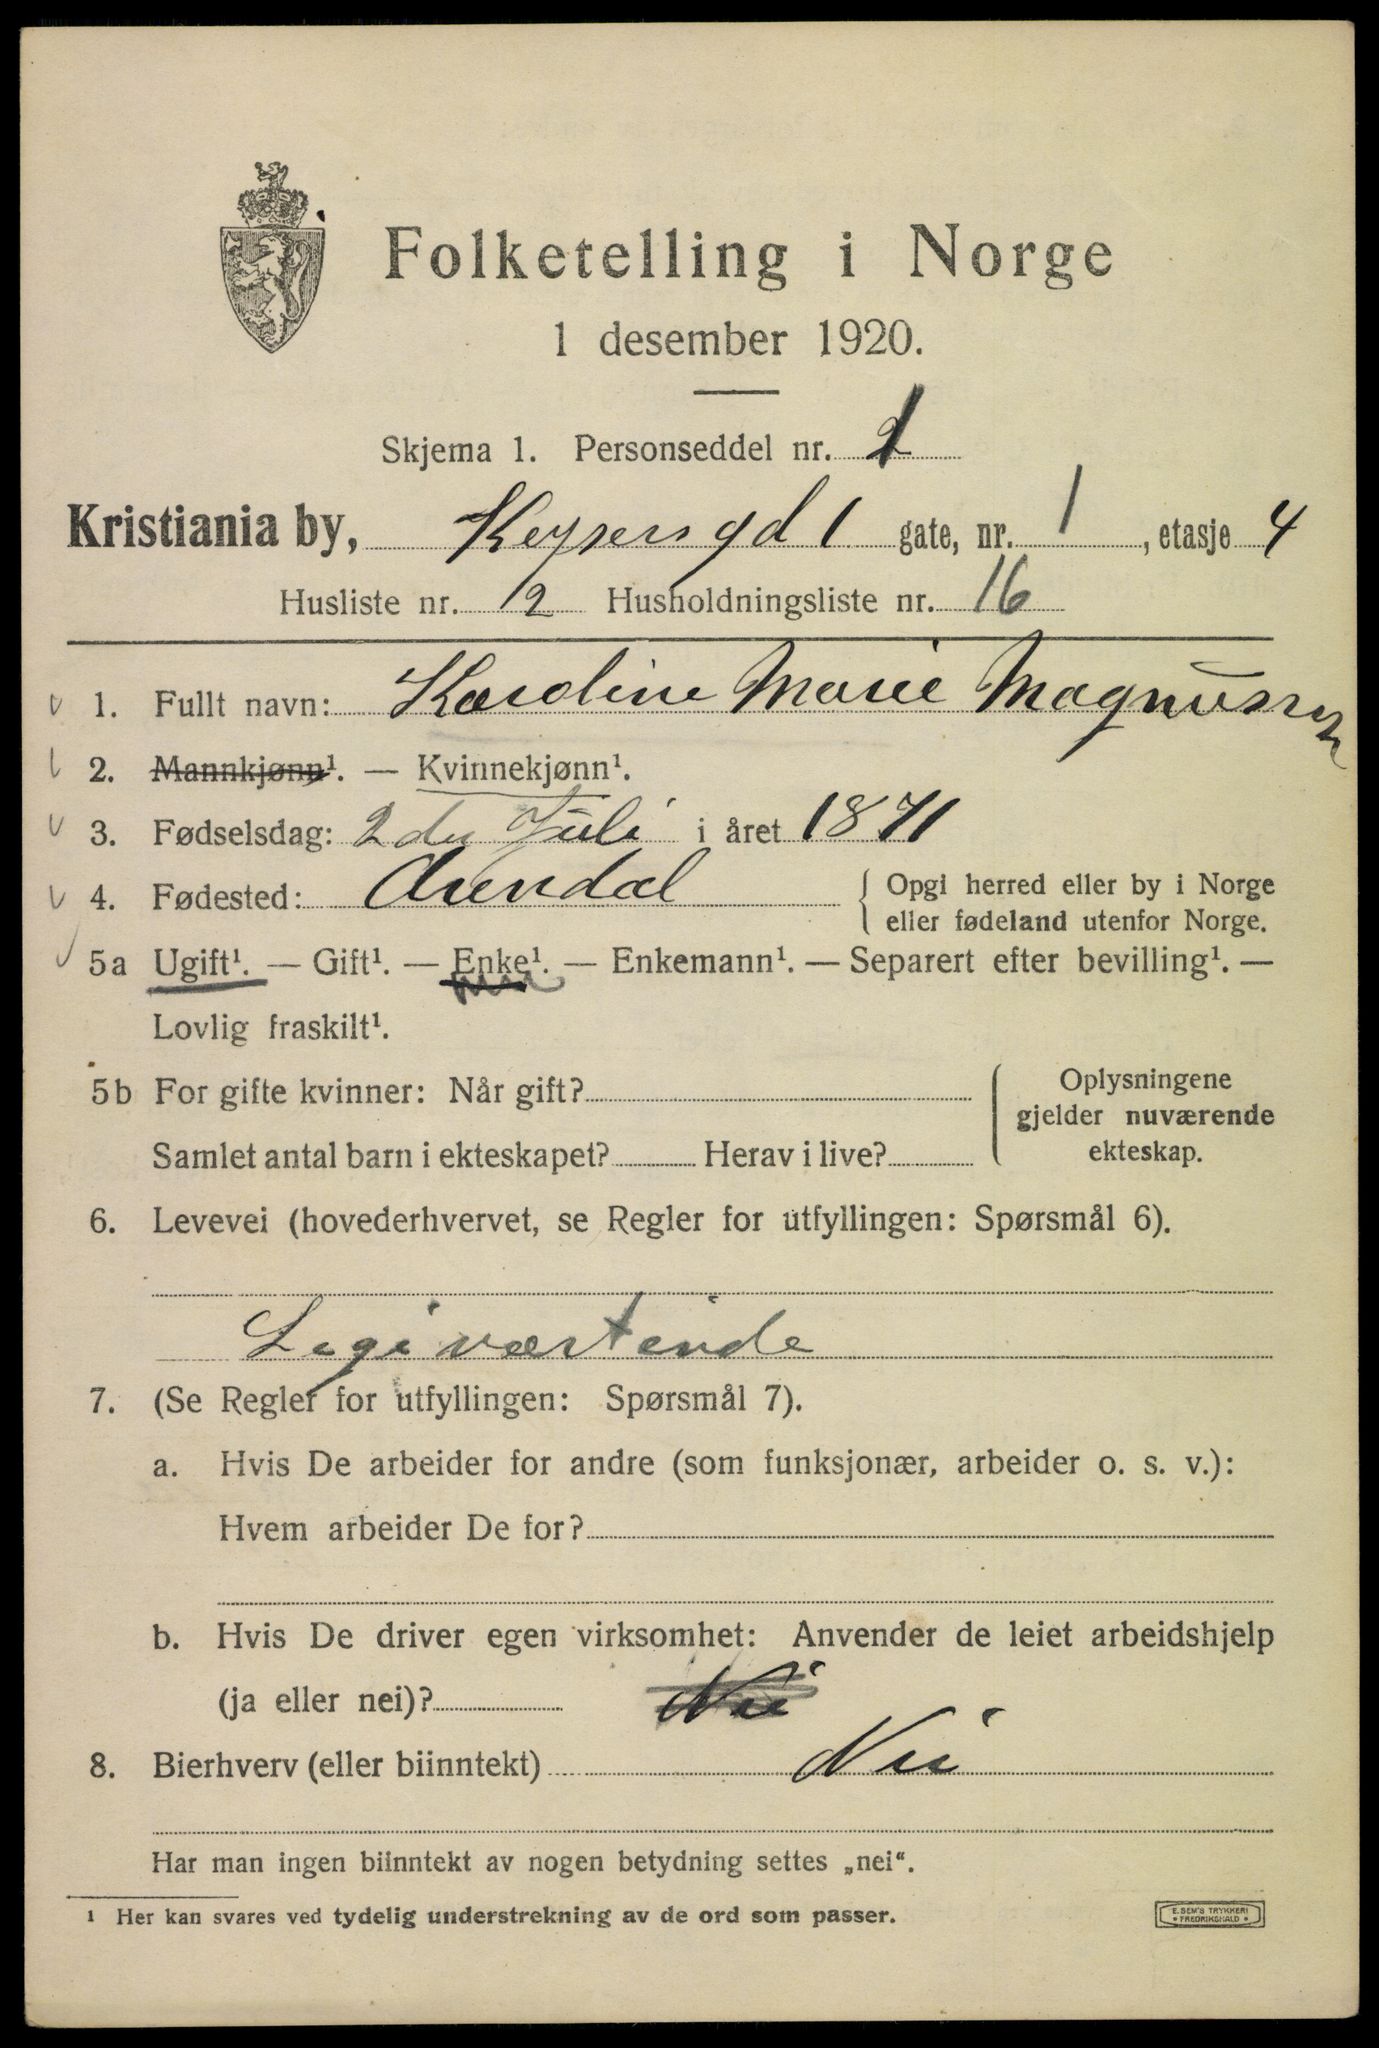 Folketelling i Norge
1 desember 1920.
Skjema 1. Personseddel nr. 1
Kristiania by, Keysers gd 1 gate, nr. 1, etasje 4
Husliste nr. 2 Husholdningsliste nr. 16
1. Fullt navn: Karoline Marie Magnussen
2. Mannkjønn¹. — Kvinnekjønn¹.
3. Fødselsdag: 2den Juli i året 1871
4. Fødested: Arendal { Opgi herred eller by i Norge
eller fødeland utenfor Norge.
5a Ugift¹. — Gift¹. — Enke¹. — Enkemann¹. — Separert efter bevilling¹. —
Lovlig fraskilt¹.
5b For gifte kvinner: Når gift? { Oplysningene
gjelder nuværende
Samlet antal barn i ekteskapet? Herav i live? ekteskap.
6. Levevei (hovederhvervet, se Regler for utfyllingen: Spørsmål 6).
Logiværtinde
7. (Se Regler for utfyllingen: Spørsmål 7).
a. Hvis De arbeider for andre (som funksjonær, arbeider o. s. v.):
Hvem arbeider De for?
b. Hvis De driver egen virksomhet: Anvender de leiet arbeidshjelp
(ja eller nei)? Nei
8. Bierhverv (eller biinntekt) Nei
Har man ingen biinntekt av nogen betydning settes „nei“.
¹ Her kan svares ved tydelig understrekning av de ord som passer.
E. SEM'S TRYKKERI
• FREDRIKSHALD •